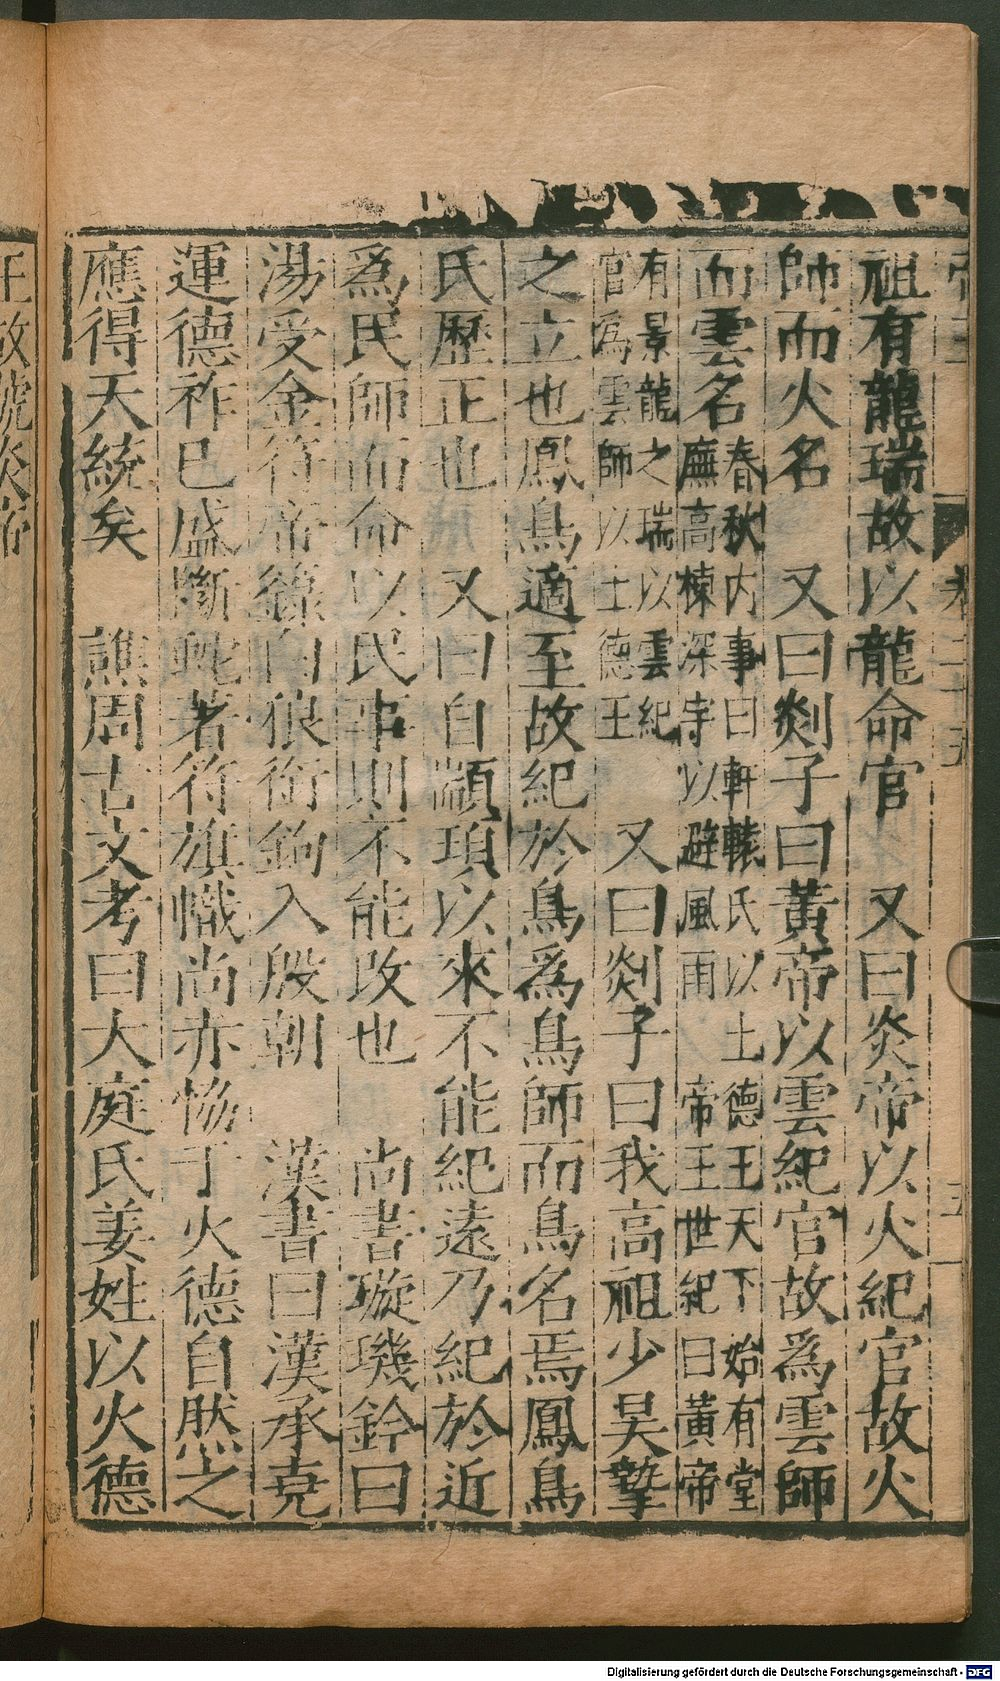 祖有龍瑞故以龍命官　又曰炎帝以火紀官故火
師而火名　又曰剡子曰黃帝以雲紀官故爲雲師
而雲名春秋内事曰軒轅氏以土德王天下始有堂
廡高棟深宇以避風雨　帝王世紀曰黃帝
有景龍之瑞以雲紀
官爲雲師以土德王
又曰剡子曰我高祖少昊摯
之立也鳳鳥適至故紀於鳥爲鳥師而鳥名焉鳳鳥
氏歷正也　又曰自顓頊以來不能紀遠乃紀於近
爲民師而命以民事則不能改也　尚書璇璣鈐曰
湯受金符帝籙白狼銜鉤入殷朝　漢書曰漢承堯
運德祚已盛斷蛇著符旗幟尚赤恊于火德自然之
應得天統矣　譙周古文考曰大庭氏姜姓以火德
王故號炎帝
卷二十五
五
Digitalisierung gefördert durch die Deutsche Forschungsgemeinschaft - DFG